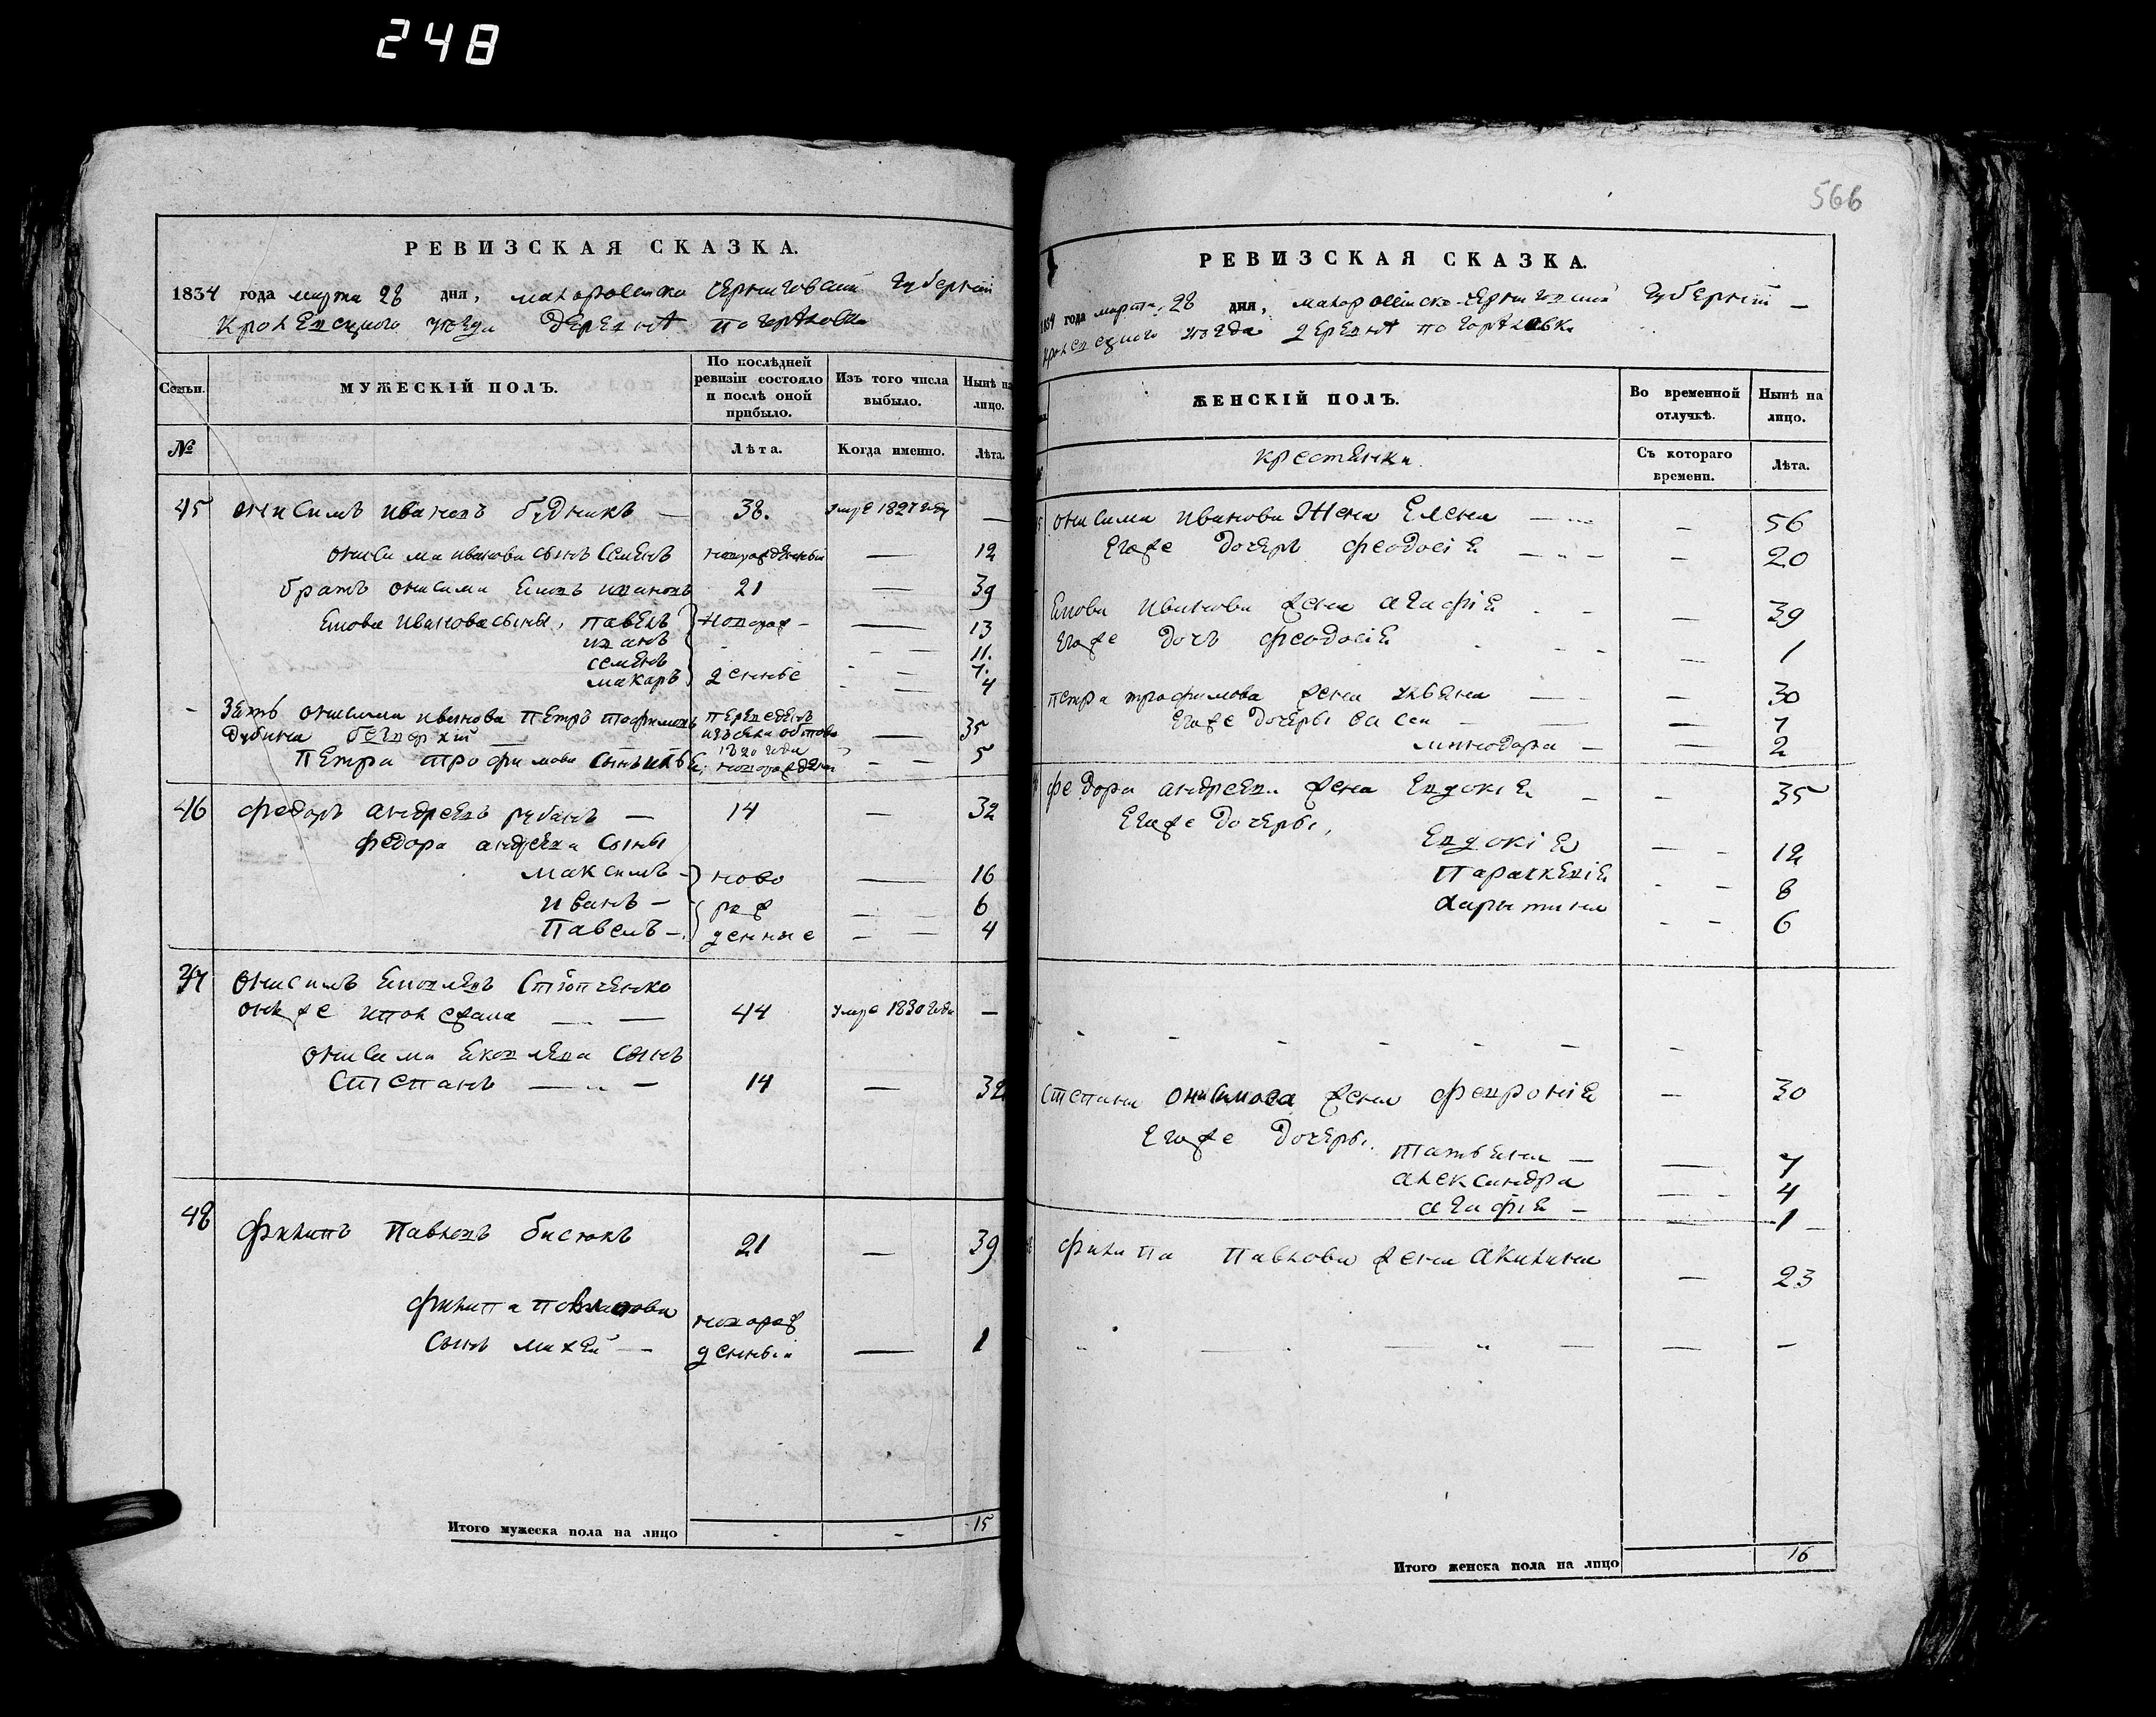 248
РЕВИЗСКАЯ СКАЗКА.
1834 года марта 28 дня, малоросийско черниговской губернїи
Кролевецкого уезда деревнѣ погорѣловки
Семьи.
МУЖЕСКІЙ ПОЛЪ.
По послѣдней ревизіи состояло и послѣ оной прибыло.
Изъ того числа выбыло.
Нынѣ на лицо.
№
Лѣта.
Когда именно.
Лѣта.
45 Онисимъ ивановъ будникъ — 38. умре 1827 году —
онисима иванова сынъ Семенъ новорожденный — 12
братъ онисима Яковъ ивановъ 21 — 39
Якова Иванова сыны, павелъ новорож- — 13
иванъ 11.
семенъ 7.
макаръ денные 4
Зять онисима иванова Петръ трофимовъ переведенъ
Дубина — 35
1820 года
Петра трофимова сынъ новорожденый 5
46 федоръ андреевъ рубанъ — 14 — 32
федора андреева сыны
максимъ ново — 16
иванъ — рож 6
Павелъ — денные 4
47 Онисимъ Яковлевъ
онъ же — 44 умре 1830 года —
онисима Яковлева сынъ
Степанъ — 14 — 32
48 Филипъ Павловъ бисюкъ 21 — 39
филипа павлова новорож
сынъ михей — денный — 1
Итого мужеска пола на лицо - - 15
566
РЕВИЗСКАЯ СКАЗКА.
1834 года марта, 28 дня, малоросійско-черниговской губернїи —
кролевецкого уезда деревнѣ погорѣловки
ЖЕНСКІЙ ПОЛЪ.
Во временной отлучкѣ.
Нынѣ на лицо.
крестянки.
Съ котораго времени.
Лѣта.
онисима иванова Жена Елена — 56
Егоже дочерь феодосія — 20
Якова иванова жена агафія — 39
Егоже дочь феодосія — 1
петра трофимова жена — 30
Егоже дочеры — 7
минодора — 2
федора андреева жена Евдокія — 35
Егоже дочеры,
Евдокія — 12
Параскевія 8
харытина 6
Степана онисимова жена февронія — 30
Егоже дочеры.
татьяна — 7
александра 4
агафія — 1
филипа павлова жена акилина — 23
Итого женска пола на лицо 16